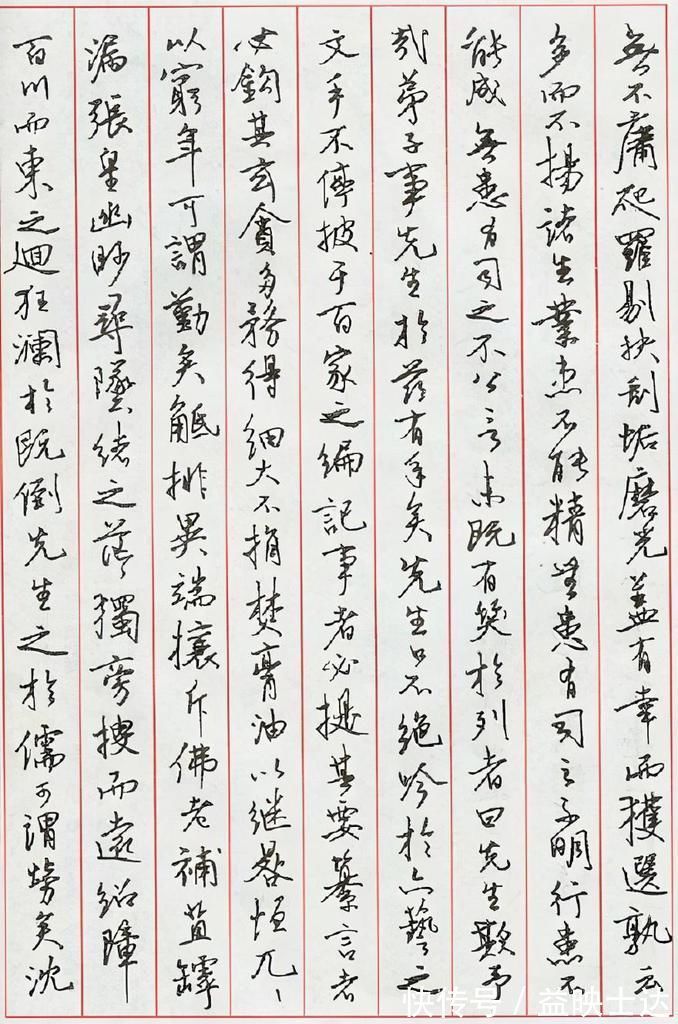 無不庸爬羅剔抉刮垢磨光蓋有幸而獲選孰云
多而不揚諸生業患不能精無患有司之不明行患不
能成無患有司之不公言未既有笑於列者曰先生欺予
哉弟子事先生於茲有年矣先生口不絕吟於六藝之
文手不停披于百家之編記事者必提其要纂言者
必鈎其玄貪多務得細大不捐焚膏油以继晷恒兀〻
以窮年可謂勤矣觝排異端攘斥佛老補苴罅
漏張皇幽眇尋墜緒之茫獨旁搜而遠紹障
百川而東之迴狂瀾於既倒先生之於儒可謂勞矣沈
快传号／益映士达